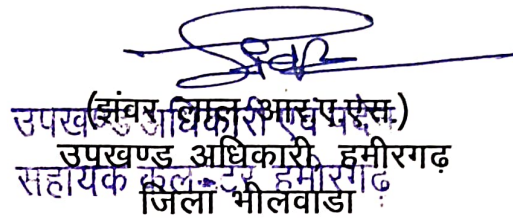 झंवर
(झंवर लाल आर.ए.एस.)
उपखण्ड अधिकारी एवं पदेन
उपखण्ड अधिकारी, हमीरगढ़
सहायक कलेक्टर हमीरगढ़
जिला भीलवाडा